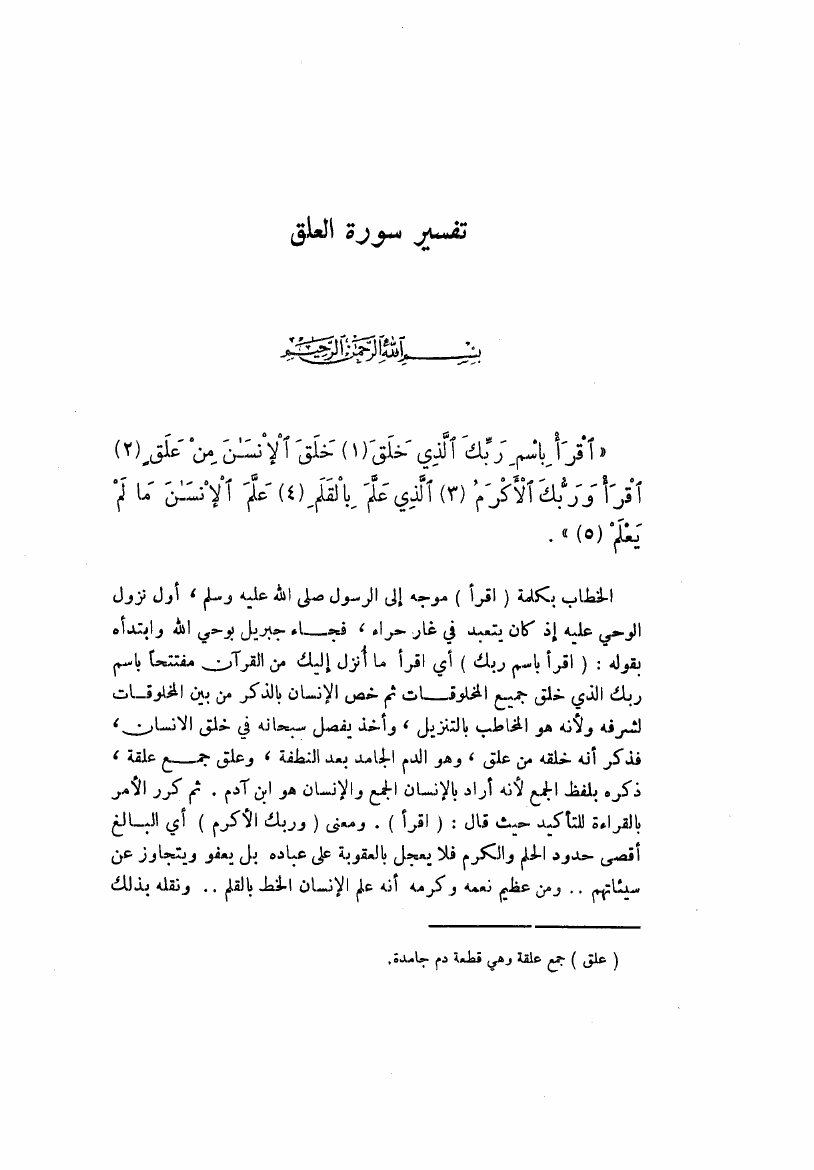 تفسير سورة العلق
بِسْمِ ٱللَّهِ ٱلرَّحْمَٰنِ ٱلرَّحِيمِ
« ٱقْرَأْ بِٱسْمِ رَبِّكَ ٱلَّذِي خَلَقَ (١) خَلَقَ ٱلْإِنْسَٰنَ مِنْ عَلَقٍ (٢)
ٱقْرَأْ وَرَبُّكَ ٱلْأَكْرَمُ (٣) ٱلَّذِي عَلَّمَ بِٱلْقَلَمِ (٤) عَلَّمَ ٱلْإِنْسَٰنَ مَا لَمْ
يَعْلَمْ (٥) » .
الخطاب بكلمة ( اقرأ ) موجه إلى الرسول صلى الله عليه وسلم ، أول نزول
الوحي عليه إذ كان يتعبد في غار حراء ، فجاء جبريل بوحي الله وابتدأه
بقوله : ( اقرأ باسم ربك ) أي اقرأ ما أُنزل إليك من القرآن مفتتحاً باسم
ربك الذي خلق جميع المخلوقات ثم خص الإنسان بالذكر من بين المخلوقات
لشرفه ولأنه هو المخاطب بالتنزيل ، وأخذ يفصل سبحانه في خلق الانسان ،
فذكر أنه خلقه من علق ، وهو الدم الجامد بعد النطفة ، وعلق جمع علقة ،
ذكره بلفظ الجمع لأنه أراد بالإنسان الجمع والإنسان هو ابن آدم . ثم كرر الأمر
بالقراءة للتأكيد حيث قال : ( اقرأ ) . ومعنى ( وربك الأكرم ) أي البالغ
أقصى حدود الحلم والكرم فلا يعجل بالعقوبة على عباده بل يعفو ويتجاوز عن
سيئاتهم .. ومن عظيم نعمه وكرمه أنه علم الإنسان الخط بالقلم .. ونقله بذلك
( علق ) جمع علقة وهي قطعة دم جامدة.